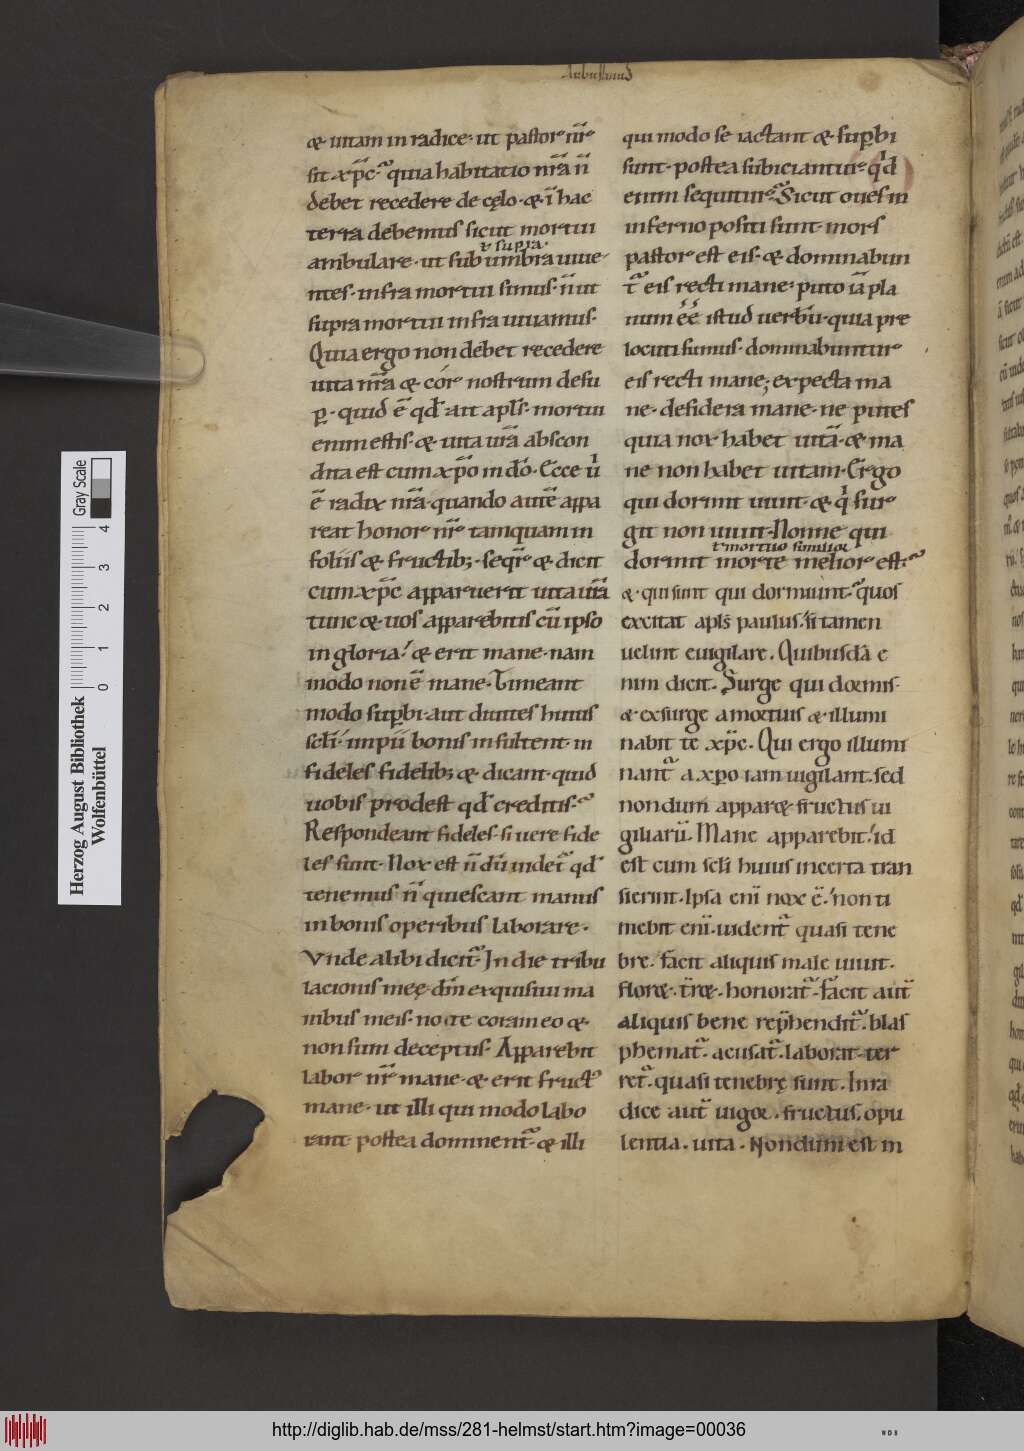 & uitam in radice· ut pastor nr̄
sit xp̄c· quia habitatio nr̄a n̄
debet recedere de cęlo· & ī hac
terra debemus sicut mortui
ł supra·
ambulare· ut sub umbra uiue
ntes· infra mortui simus· n̄ ut
supra mortui infra uiuamus·
Quia ergo non debet recedere
uita nr̄a & cor nostrum desu
ꝑ· quid ē qd̄ ait apl̄s· mortui
enim estis· & uita ur̄a abscon
dita est cum xp̄o in dō· Ecce u̓
ē radix nr̄a· quando autē appa
reat honor nr̄ tamquam in
foliis & fructib;· seqr̄ & dicit
cum xp̄c apparuerit uita ur̄a
tunc & uos apparebitis cū ipso
in gloria! & erit mane· nam
modo non ē mane· Timeant
modo suꝑbi· aut diuites huius
scl̄i· impii bonis insultent· in
fideles fidelib; & dicant· quid
uobis prodest qd̄ creditis·
Respondeant fideles· si uere fide
les sunt· Nox est n̄dū uidet̄ qd̄
tenemus n̄ quiescant manus
in bonis operibus laborare·
Vnde alibi dicit̄· In die tribu
lacionis meę dm̄ exquisiui ma
nibus meis· nocte coram eo &
non sum deceptus· Apparebit
labor nr̄ mane· & erit fruct᷒
mane· ut illi qui modo labo
rant· postea dominent̄· & illi
qui modo se iactant & suꝑbi
sunt· postea subiciantur· qd̓
enim sequitur· Sicut oues in
inferno positi sunt· mors
pastor est eis· & dominabun
t̄ eis recti mane· puto iā pla
num ēē istud uerbū· quia pre
locuti sumus· dominabuntur
eis recti mane; expecta ma
ne· desidera mane· ne putes
quia nox habet uitā· & ma
ne non habet uitam· Ergo
qui dormit uiuit· & q̓ sur
git non uiuit· Nonne qui
ł mortuo similior
dormit morte melior est·
& qui sunt qui dormiunt· quos
excitat apl̄s paulus! si tamen
uelint euigilare. Quibusdā e
nim dicit. Surge qui dormis·
& exsurge a mortuis & illumi
nabit te xp̄c. Qui ergo illumi
nant̄ a xp̄o iam uigilant. sed
nondum apparet fructus ui
giliarū. Mane apparebit! id
est cum scl̄i huius incerta tran
sierint. Ipsa enī nox ē! non ti
mebit enī· uident̄ quasi tene
bre. facit aliquis male uiuit.
floret. t̄ret. honorat̄. facit aut̄
aliquis bene rep̄hendit̄. blas
phemat̄. acusat̄. laborat ter
ret̄. quasi tenebrę sunt. In ra
dice aut̄ uigor. fructus, opu
lentia. uita. Nondum est in
Herzog August Bibliothek
Wolfenbüttel
Gray Scale
0 1 2 3 4
http://diglib.hab.de/mss/281-helmst/start.htm?image=00036